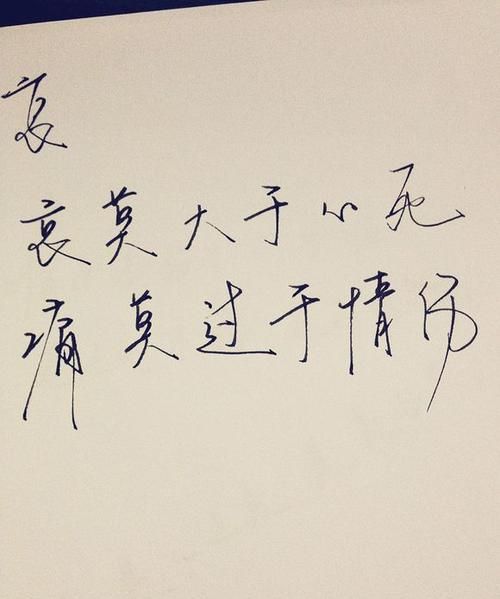 哀
哀莫大于心死
痛莫过于情伤